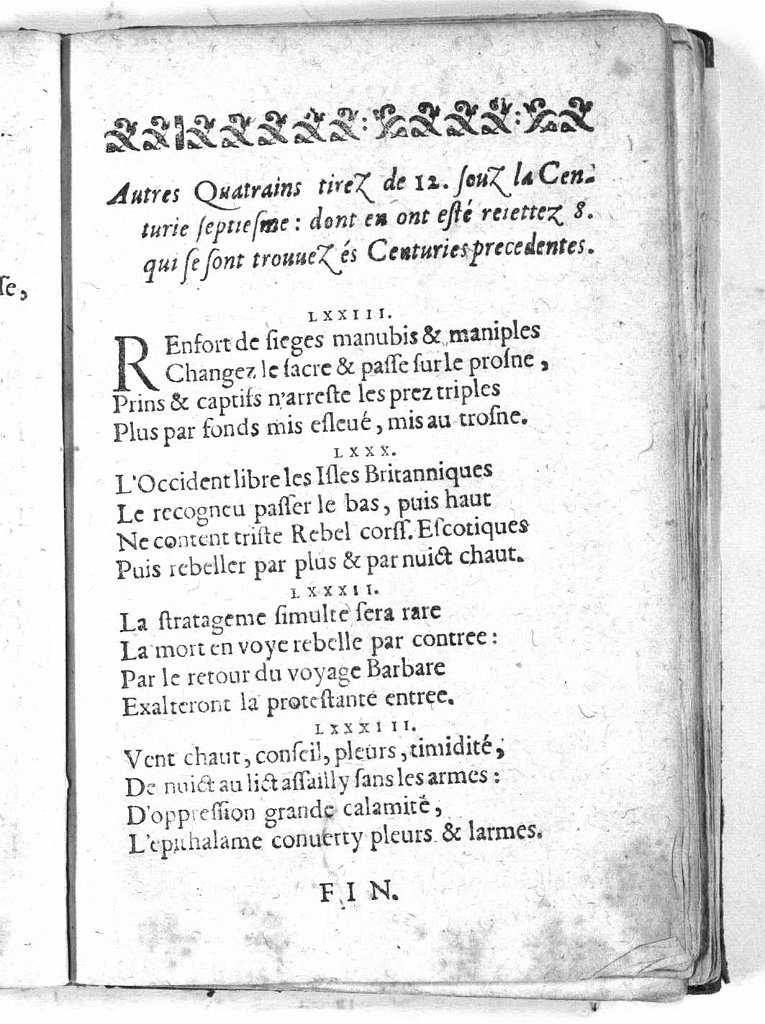 ſe,
Autres Quatrains tirez de 12. ſouz la Cen-
turie ſeptieſme: dont en ont eſté reiettez 8.
qui ſe ſont trouuez és Centuries precedentes.
LXXIII.
REnfort de ſieges manubis & maniples
Changez le ſacre & paſſe ſur le proſne,
Prins & captifs n'arreſte les prez triples
Plus par fonds mis eſleué, mis au troſne.
LXXX.
L'Occident libre les Iſles Britanniques
Le recogneu paſſer le bas, puis haut
Ne content triſte Rebel corſſ. Eſcotiques
Puis rebeller par plus & par nuict chaut.
LXXXII.
La ſtratageme ſimulte ſera rare
La mort en voye rebelle par contree:
Par le retour du voyage Barbare
Exalteront la proteſtante entree.
LXXXIII.
Vent chaut, conſeil, pleurs, timidité,
De nuict au lict aſſailly ſans les armes:
D'oppreſſion grande calamité,
L'epithalame conuerty pleurs & larmes.
FIN.